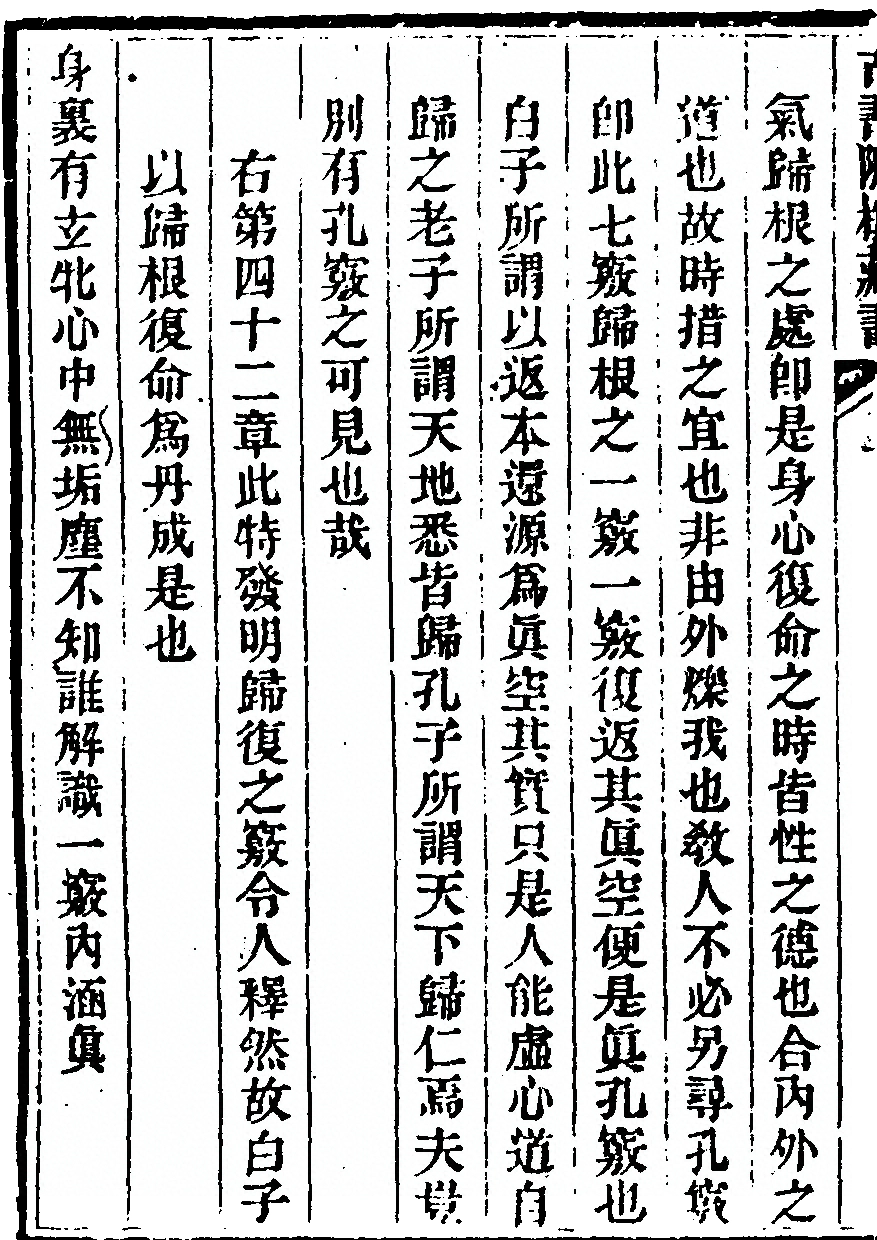 氣歸根之處卽是身心復命之時皆性之德也合内外之
道也故時措之宜也非由外爍我也教人不必另尋孔竅
卽此七竅歸根之一竅一竅復返其眞空便是眞孔竅也
白子所謂以返本還源爲眞空其實只是人能虛心道自
歸之老子所謂天地悉皆歸孔子所謂天下歸仁焉夫豈
別有孔竅之可見也哉
右第四十二章此特發明歸復之竅令人釋然故白子
以歸根復命爲丹成是也
身裏有玄牝心中無垢塵不知誰解識一竅内涵眞